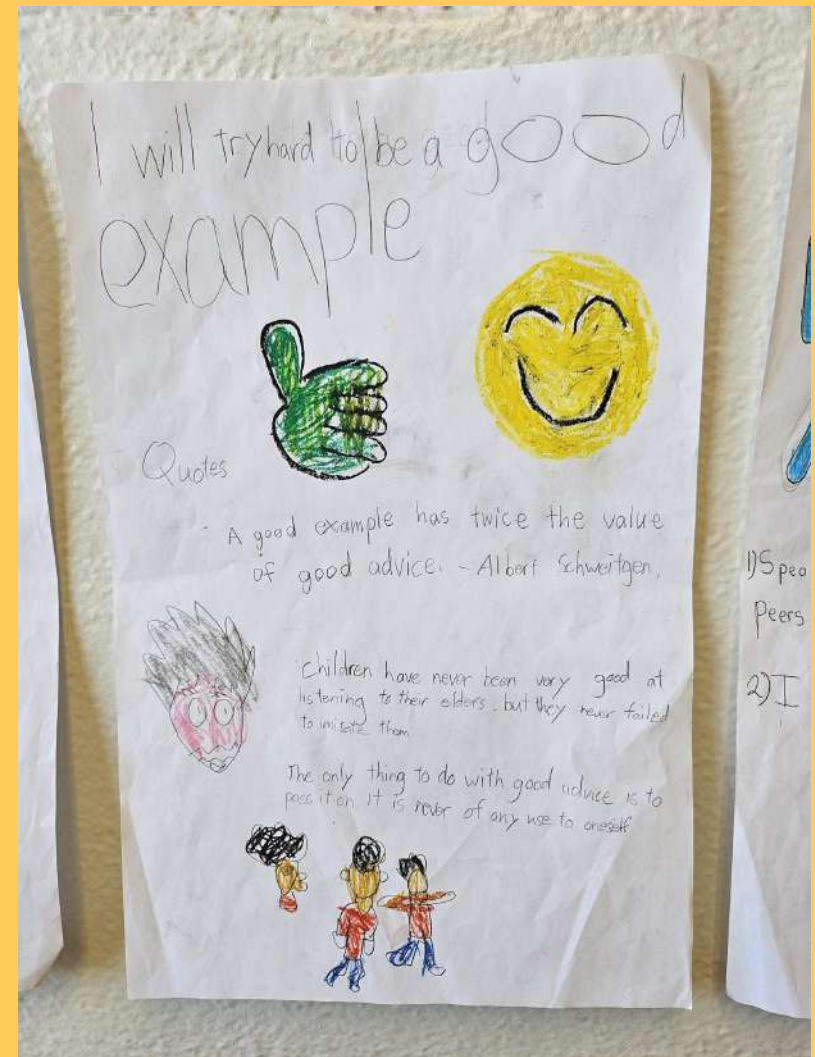 I will try hard to be a good
example
Quotes
A good example has twice the value
of good advice. - Albert Schweitgen.
Children have never been very good at
listening to their elders. but they never failed
to imitate them
The only thing to do with good advice is to
pass it on It is never of any use to oneself
1) Spea
Peers
2) I